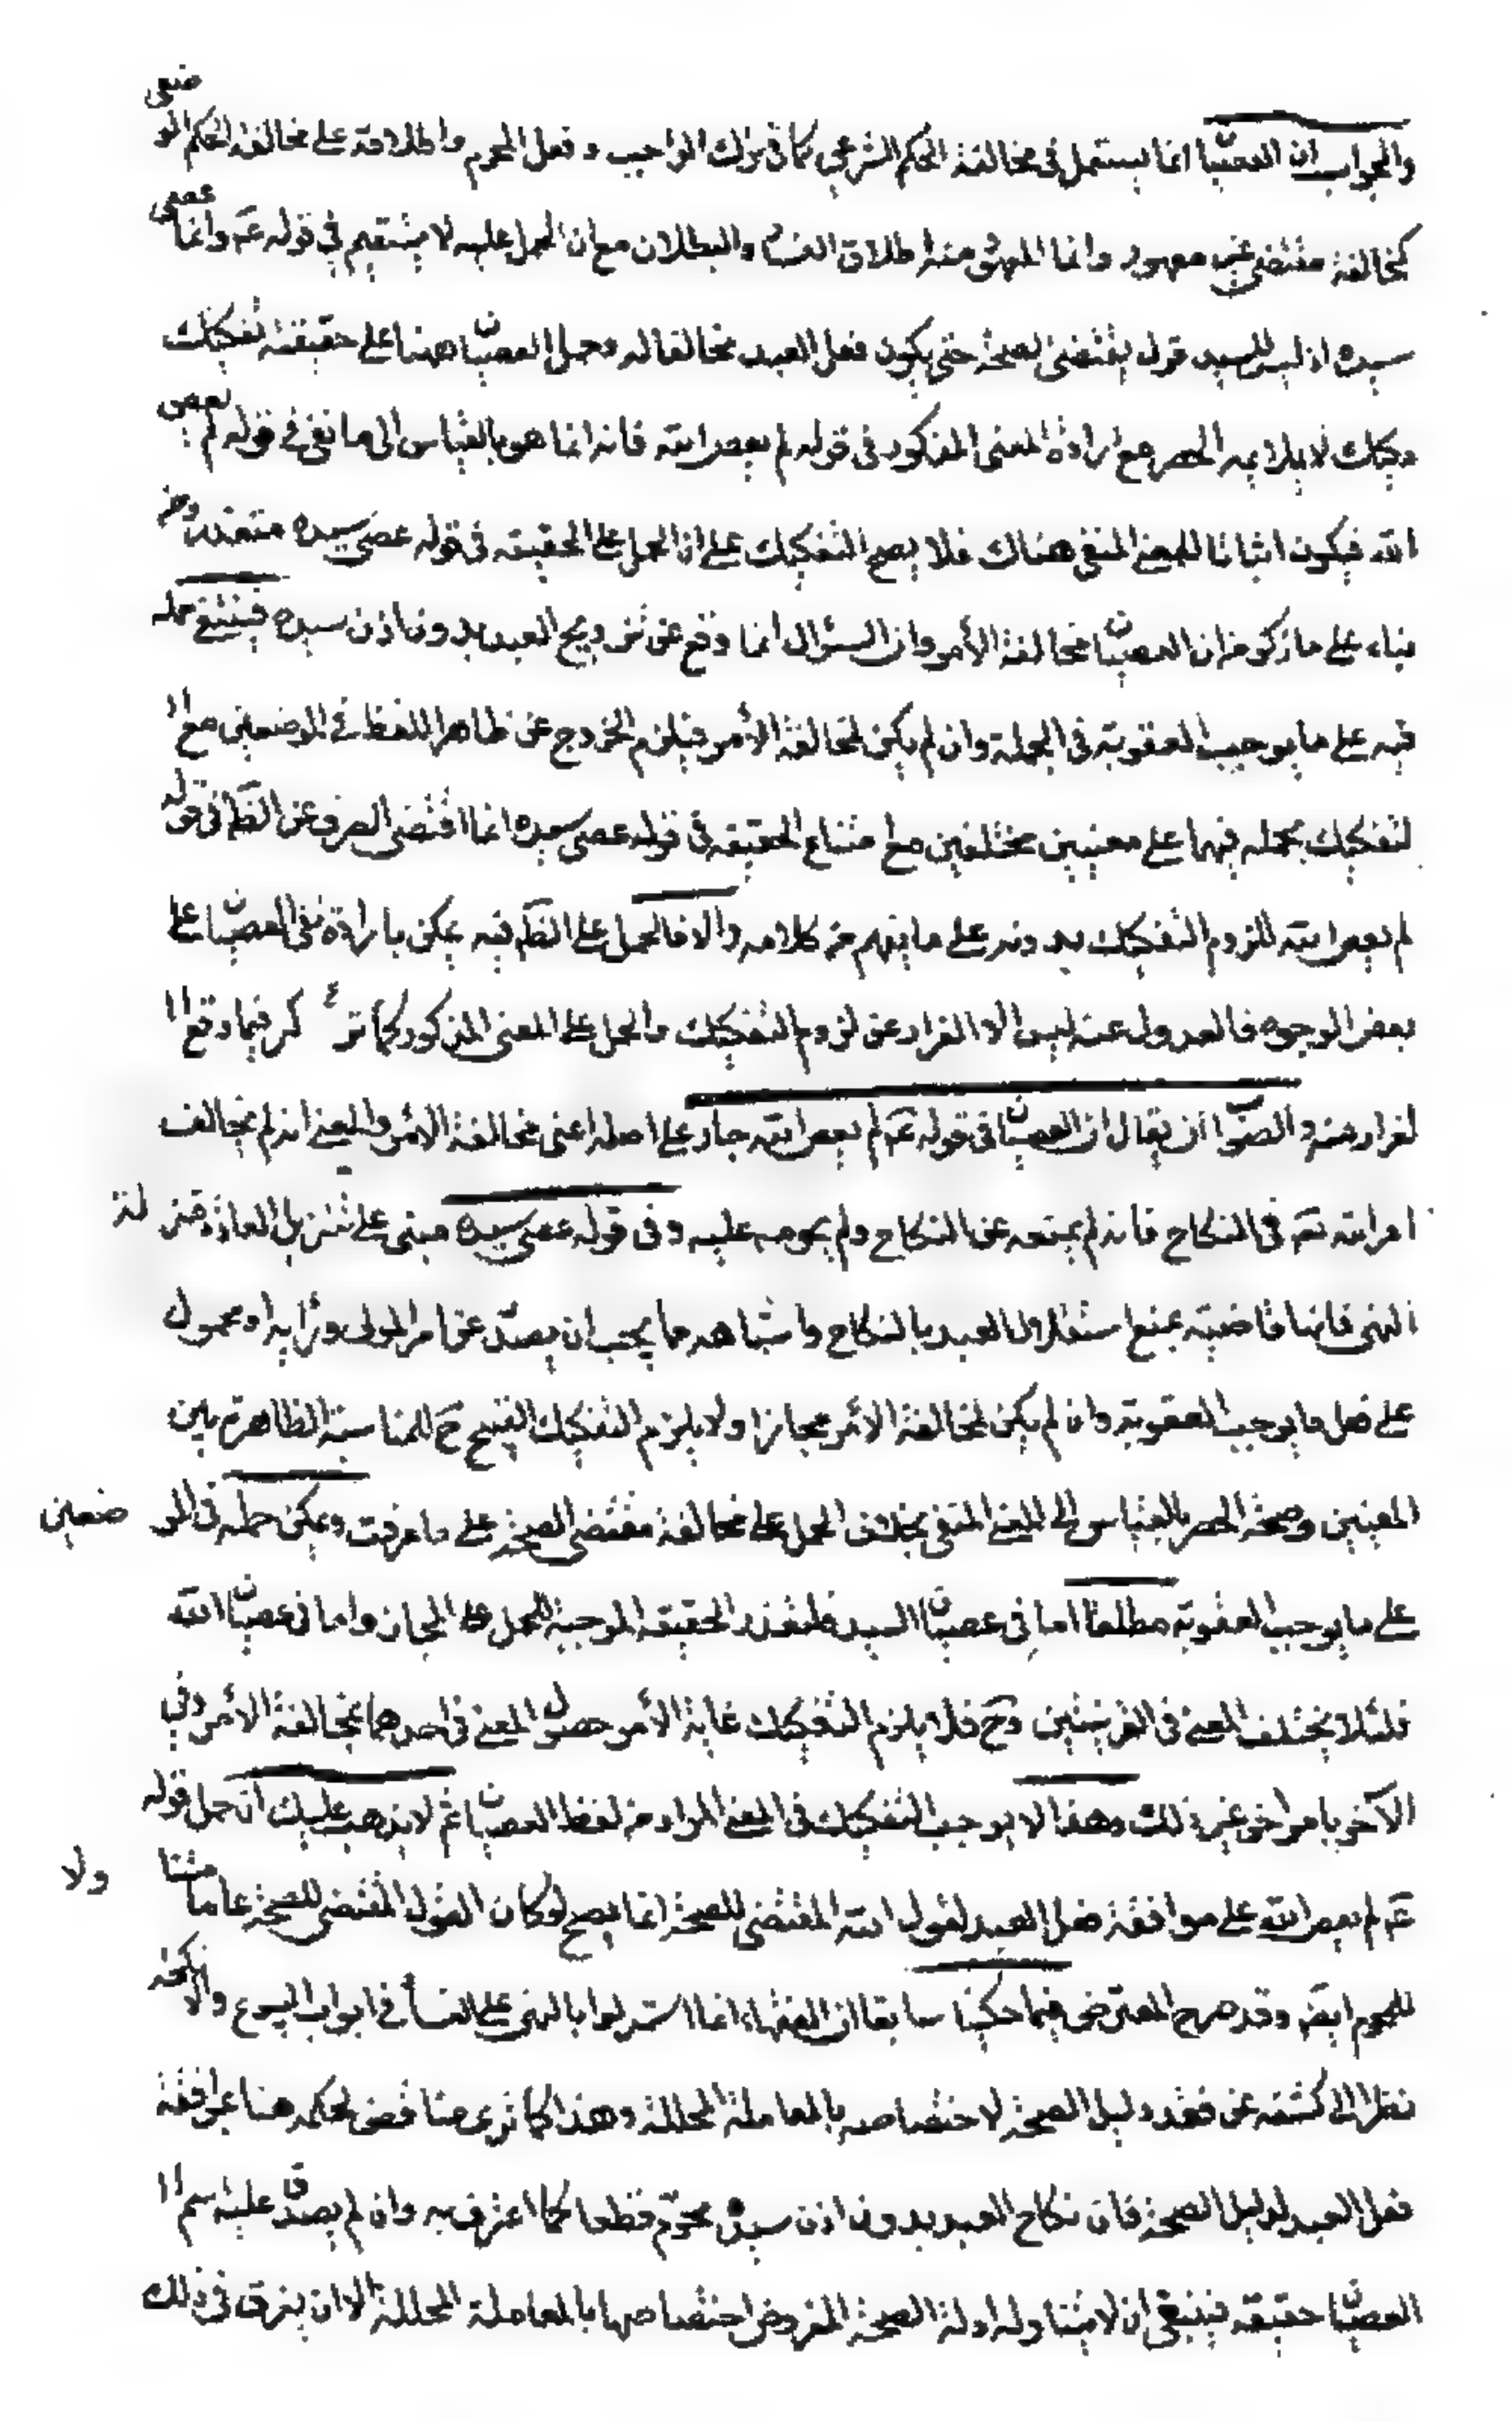 والجواب ان العصيان انما يستعمل في مخالفة الحكم الشرعي كما في ترك الواجب و فعل المحرم واطلاقه على مخالفة الحكم الوضعي
كمخالفة مقتضى غير معهود وانما المعهود منه اطلاق الفساد والبطلان مع ان الحمل عليه لا يستقيم في قوله عم وانما عصى
سيده اذ ليس للسيد قول يقتضى الصحة حتى يكون فعل العبد مخالفا له وحمل العصيان ههنا على حقيقته تفكيك
ركيك لا يلايمه الحصر مع ارادة المعنى المذكور في قوله لم يعص الله فانه انما هو بالقياس الى ما نفى في قوله لم يعص
الله فيكون اثباتا للمعنى المنفي هناك فلا يصح التفكيك على ان الحمل على الحقيقه في قوله عصى سيده متعذر
بناء على ما ذكر من ان العصيان مخالفة الأمر وان السؤال انما وقع عن تزويج العبد بدون اذن سيده فينبغي حمله
فيه على ما يوجب العقوبة في الجملة وان لم يكن لمخالفة الأمر فيلزم الخروج عن ظاهر اللفظ في الموضعين مع ا
لتفكيك بحمله فيهما على معنيين مختلفين مع امتناع الحقيقه في قوله عصى سيده انما اقتضى الصرف عن الظ في قوله
لم يعص الله للزوم التفكيك بدونه على ما يفهم من كلامه والا فالحمل على الظم فيه يمكن بارادة نفى العصيان على
بعض الوجوه فالعدول عنه ليس الا الفرار عن لزوم التفكيك والحمل على المعنى المذكور كما ترى كر فيما وقع ا
لفرار منه والصواب ان يقال ان العصيان في قوله عم لم يعص الله جار على اصله اعنى مخالفة الامر والمعنى انه لم يخالف
امر الله تع في النكاح فانه لم يمنعه عن النكاح ولم يحرمه عليه وفي قوله عصى سيده مبنى على تنزيل العادة منزلة
النهى فانها قاضية بمنع استقلال العبد بالنكاح واشباهه مما يجب ان يصدر عن امر المولى ورأيه او محمول
على فعل ما يوجب العقوبة وان لم يكن لمخالفة الامر مجازا ولا يلزم التفكيك القبيح ح للمناسبة الظاهرة بين
المعنيين وصحة الحصر بالقياس الى المعنى المنفي بخلاف الحمل على مخالفة مقتضى الصحة على ما عرفت ويمكن حمله في الموضعين
على ما يوجب العقوبة مطلقا اما في عصيان السيد فلتعذر الحقيقة الموجبة للحمل على المجاز واما في عصيان الله
فلئلا يختلف المعنى في القرينتين وح فلا يلزم التفكيك غاية الأمر حصول المعنى في احدهما بمخالفة الأمر وفي
الآخر بامر اخر غير ذلك وهذا لا يوجب التفكيك في المعنى المراد من لفظ العصيان ثم لا يذهب عليك ان حمل قوله
عم لم يعص الله على موافقة فعل العبد لقول الله المقتضى للصحة انما يصح لو كان القول المقتضى للصحة عاما متناولا
للمحرم ايض وقد صرح المعترض فيما حكينا سابقا ان الفقهاء انما استدلوا بالنهى على الفساد في ابواب البيوع والانكحه
نظرا الى كشفه عن فقد دليل الصحة لاختصاصه بالمعاملة المحللة وهذا كما ترى مناقض لحكمه هنا بموافقة
فعل العبد لدليل الصحة فان نكاح العبد بدون اذن سيده محرم قطعا كما اعترف به وان لم يصدق عليه اسم ا
لعصيان حقيقه فينبغى ان لا يتناوله ادلة الصحة المفروض اختصاصها بالمعاملة المحللة الا ان يفرق في ذلك